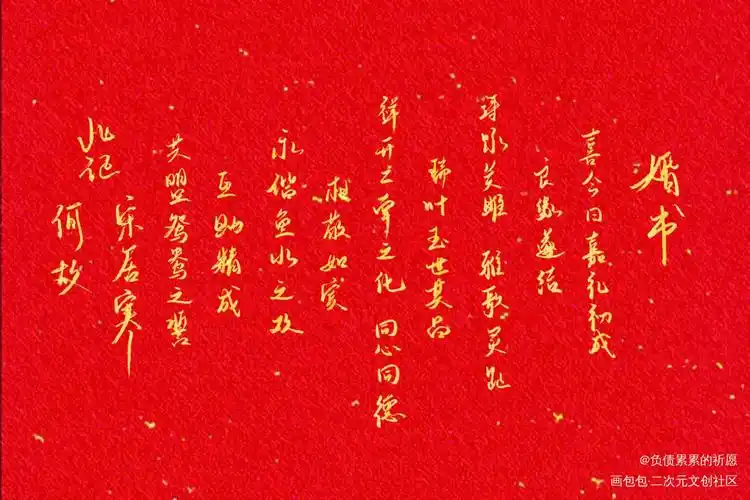 婚书
喜今日嘉礼初成
良缘遂结
诗咏关雎 雅歌麟趾
瑞叶五世其昌
祥开二南之化 同心同德
相敬如宾
永偕鱼水之欢
互助精诚
共盟鸳鸯之誓
此证
宋居寒
何故
@负债累累的祈愿
画包包·二次元文创社区